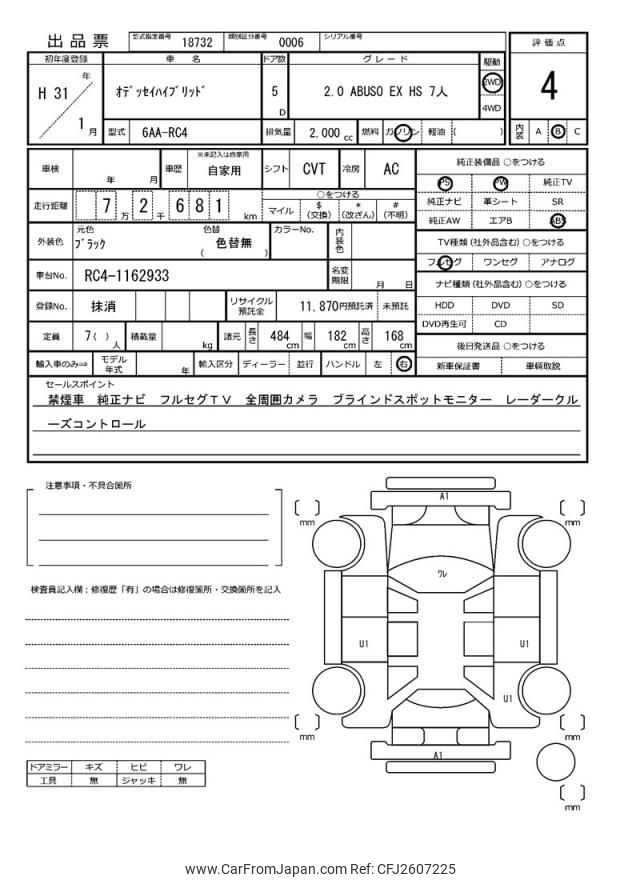 出品票 型式指定番号 18732 類別区分番号 0006 シリアル番号
初年度登録 車 名 ドア数 グレード 駆動 評価点
H 31 年 1 月 ｵﾃﾞｯｾｲﾊｲﾌﾞﾘｯﾄﾞ 5 D 2.0 ABUSO EX HS 7人 2WD 4WD 4
型式 6AA-RC4 排気量 2,000 cc 燃料 ガソリン 軽油 ( ) 内装 A B C
車検 年 月 車歴 ※未記入は自家用 自家用 シフト CVT 冷房 AC 純正装備品 ○をつける
PS PW 純正TV
走行距離 7 万 2 千 6 8 1 km ○をつける
マイル $(交換) *(改ざん) #(不明)
純正ナビ 革シート SR
純正AW エアB ABS
外装色 元色 ﾌﾞﾗｯｸ 色替 ( 色替無 ) カラーNo. 内装色
TV種類 (社外品含む) ○をつける
フルセグ ワンセグ アナログ
車台No. RC4-1162933 名変期限 月 日
ナビ種類 (社外品含む) ○をつける
登録No. 抹消 リサイクル預託金 11,870円預託済 未預託
HDD DVD SD
DVD再生可 CD
定員 7( ) 人 積載量 kg 諸元 長さ 484 cm 幅 182 cm 高さ 168 cm
後日発送品 ○をつける
輸入車のみ⇒ モデル年式 年 輸入区分 ディーラー 並行 ハンドル 左 右
新車保証書 車輌取説
セールスポイント
禁煙車 純正ナビ フルセグＴＶ 全周囲カメラ ブラインドスポットモニター レーダークル
ーズコントロール
注意事項・不具合箇所
検査員記入欄：修復歴「有」の場合は修復箇所・交換箇所を記入
A1
mm mm
ﾜﾚ
U1 U1
U1
mm mm
A1
mm
ドアミラー キズ ヒビ ワレ
工具 無 ジャッキ 無
www.CarFromJapan.com Ref: CFJ2607225